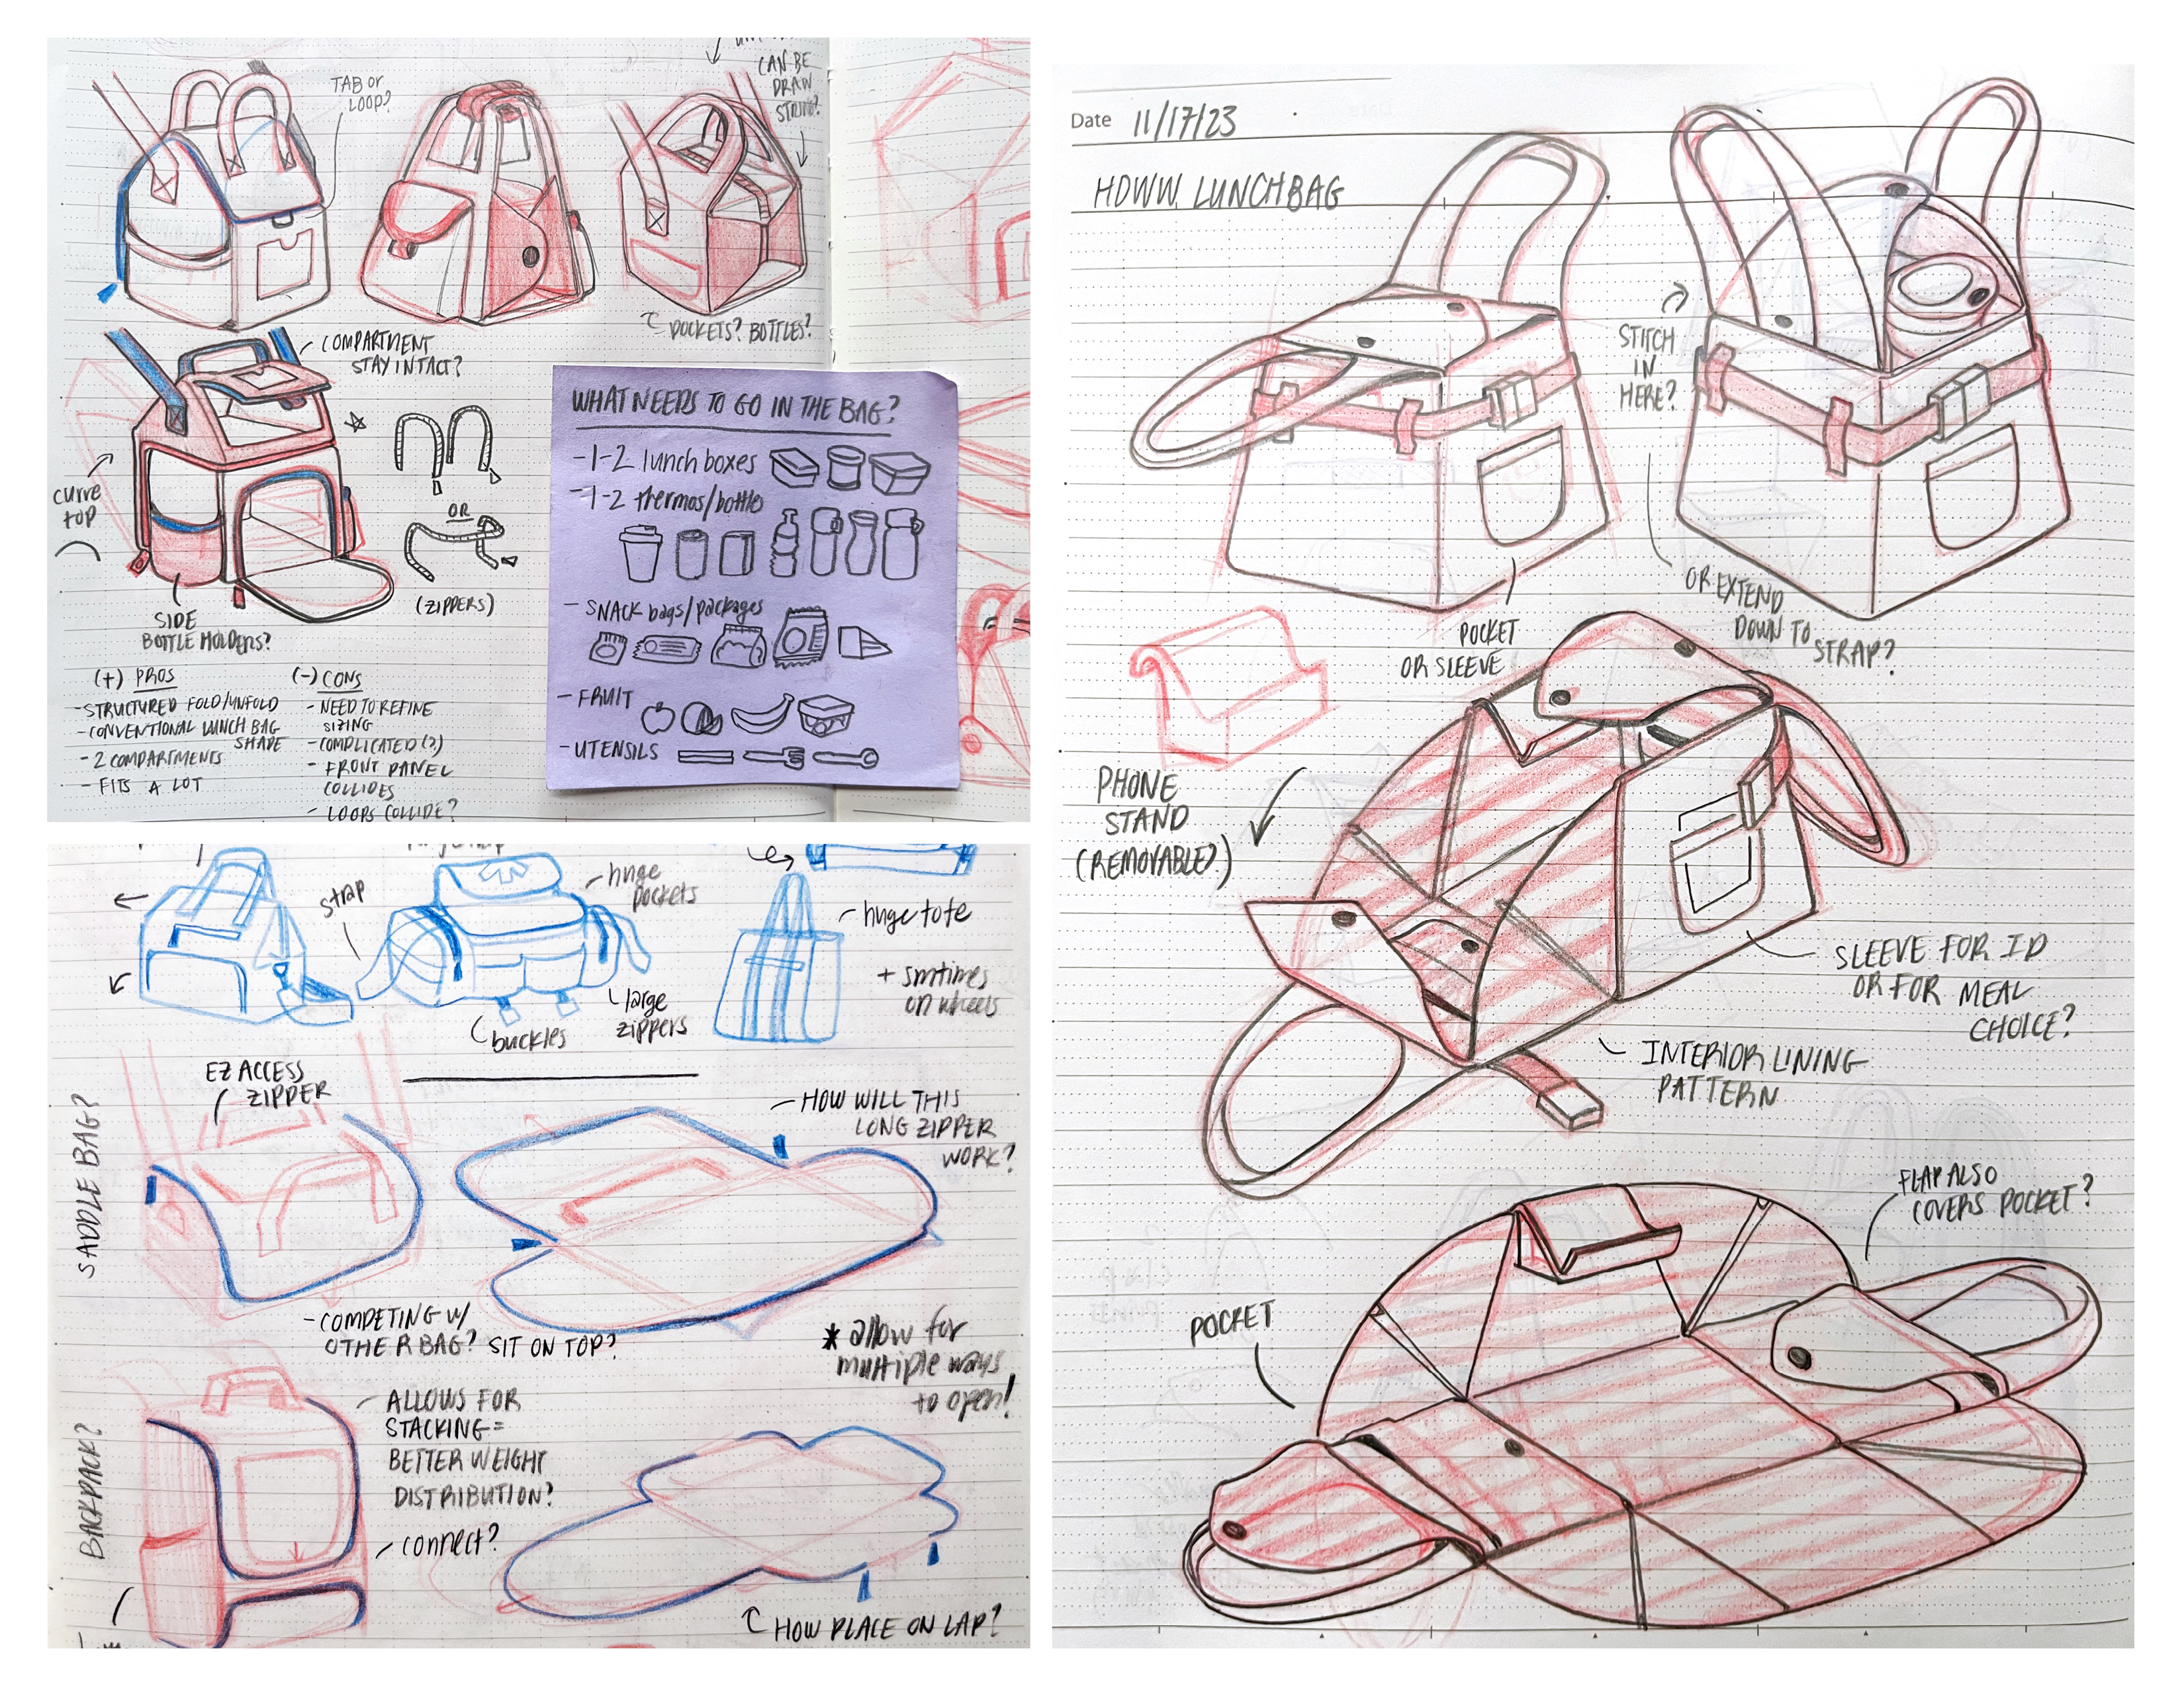 TAB or
LOOP?
CAN BE
DRAW
STRING?
POCKETS? BOTTLES?
COMPARTMENT
STAY INTACT?
CURVE
TOP
OR
(ZIPPERS)
SIDE
BOTTLE HOLDERS?
(+) PROS
-STRUCTURED FOLD/UNFOLD
-CONVENTIONAL LUNCH BAG
SHAPE
-2 COMPARTMENTS
-FITS A LOT
(-) CONS
-NEED TO REFINE
SIZING
-COMPLICATED(?)
-FRONT PANEL
COLLIDES
-LOOPS COLLIDE?
WHAT NEEDS TO GO IN THE BAG?
-1-2 lunch boxes
-1-2 thermos/bottle
-SNACK bags/packages
-FRUIT
-UTENSILS
strap
huge
pockets
large
zippers
buckles
huge tote
+ smtimes
on wheels
SADDLE BAG?
EZ ACCESS
ZIPPER
-HOW WILL THIS
LONG ZIPPER
WORK?
-COMPETING W/
OTHER BAG? SIT ON TOP?
* allow for
multiple ways
to open!
BACKPACK?
ALLOWS FOR
STACKING=
BETTER WEIGHT
DISTRIBUTION?
connect?
HOW PLACE ON LAP?
Date 11/17/23
HDWW. LUNCHBAG
STITCH
IN
HERE?
OR EXTEND
DOWN TO
STRAP?
POCKET
OR SLEEVE
PHONE
STAND
(REMOVABLE?)
SLEEVE FOR ID
OR FOR MEAL
CHOICE?
INTERIOR LINING
PATTERN
FLAP ALSO
COVERS POCKET?
POCKET